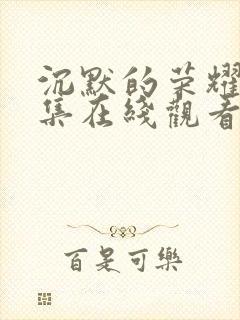 沉默的荣耀
集在綫觀看
百是可樂